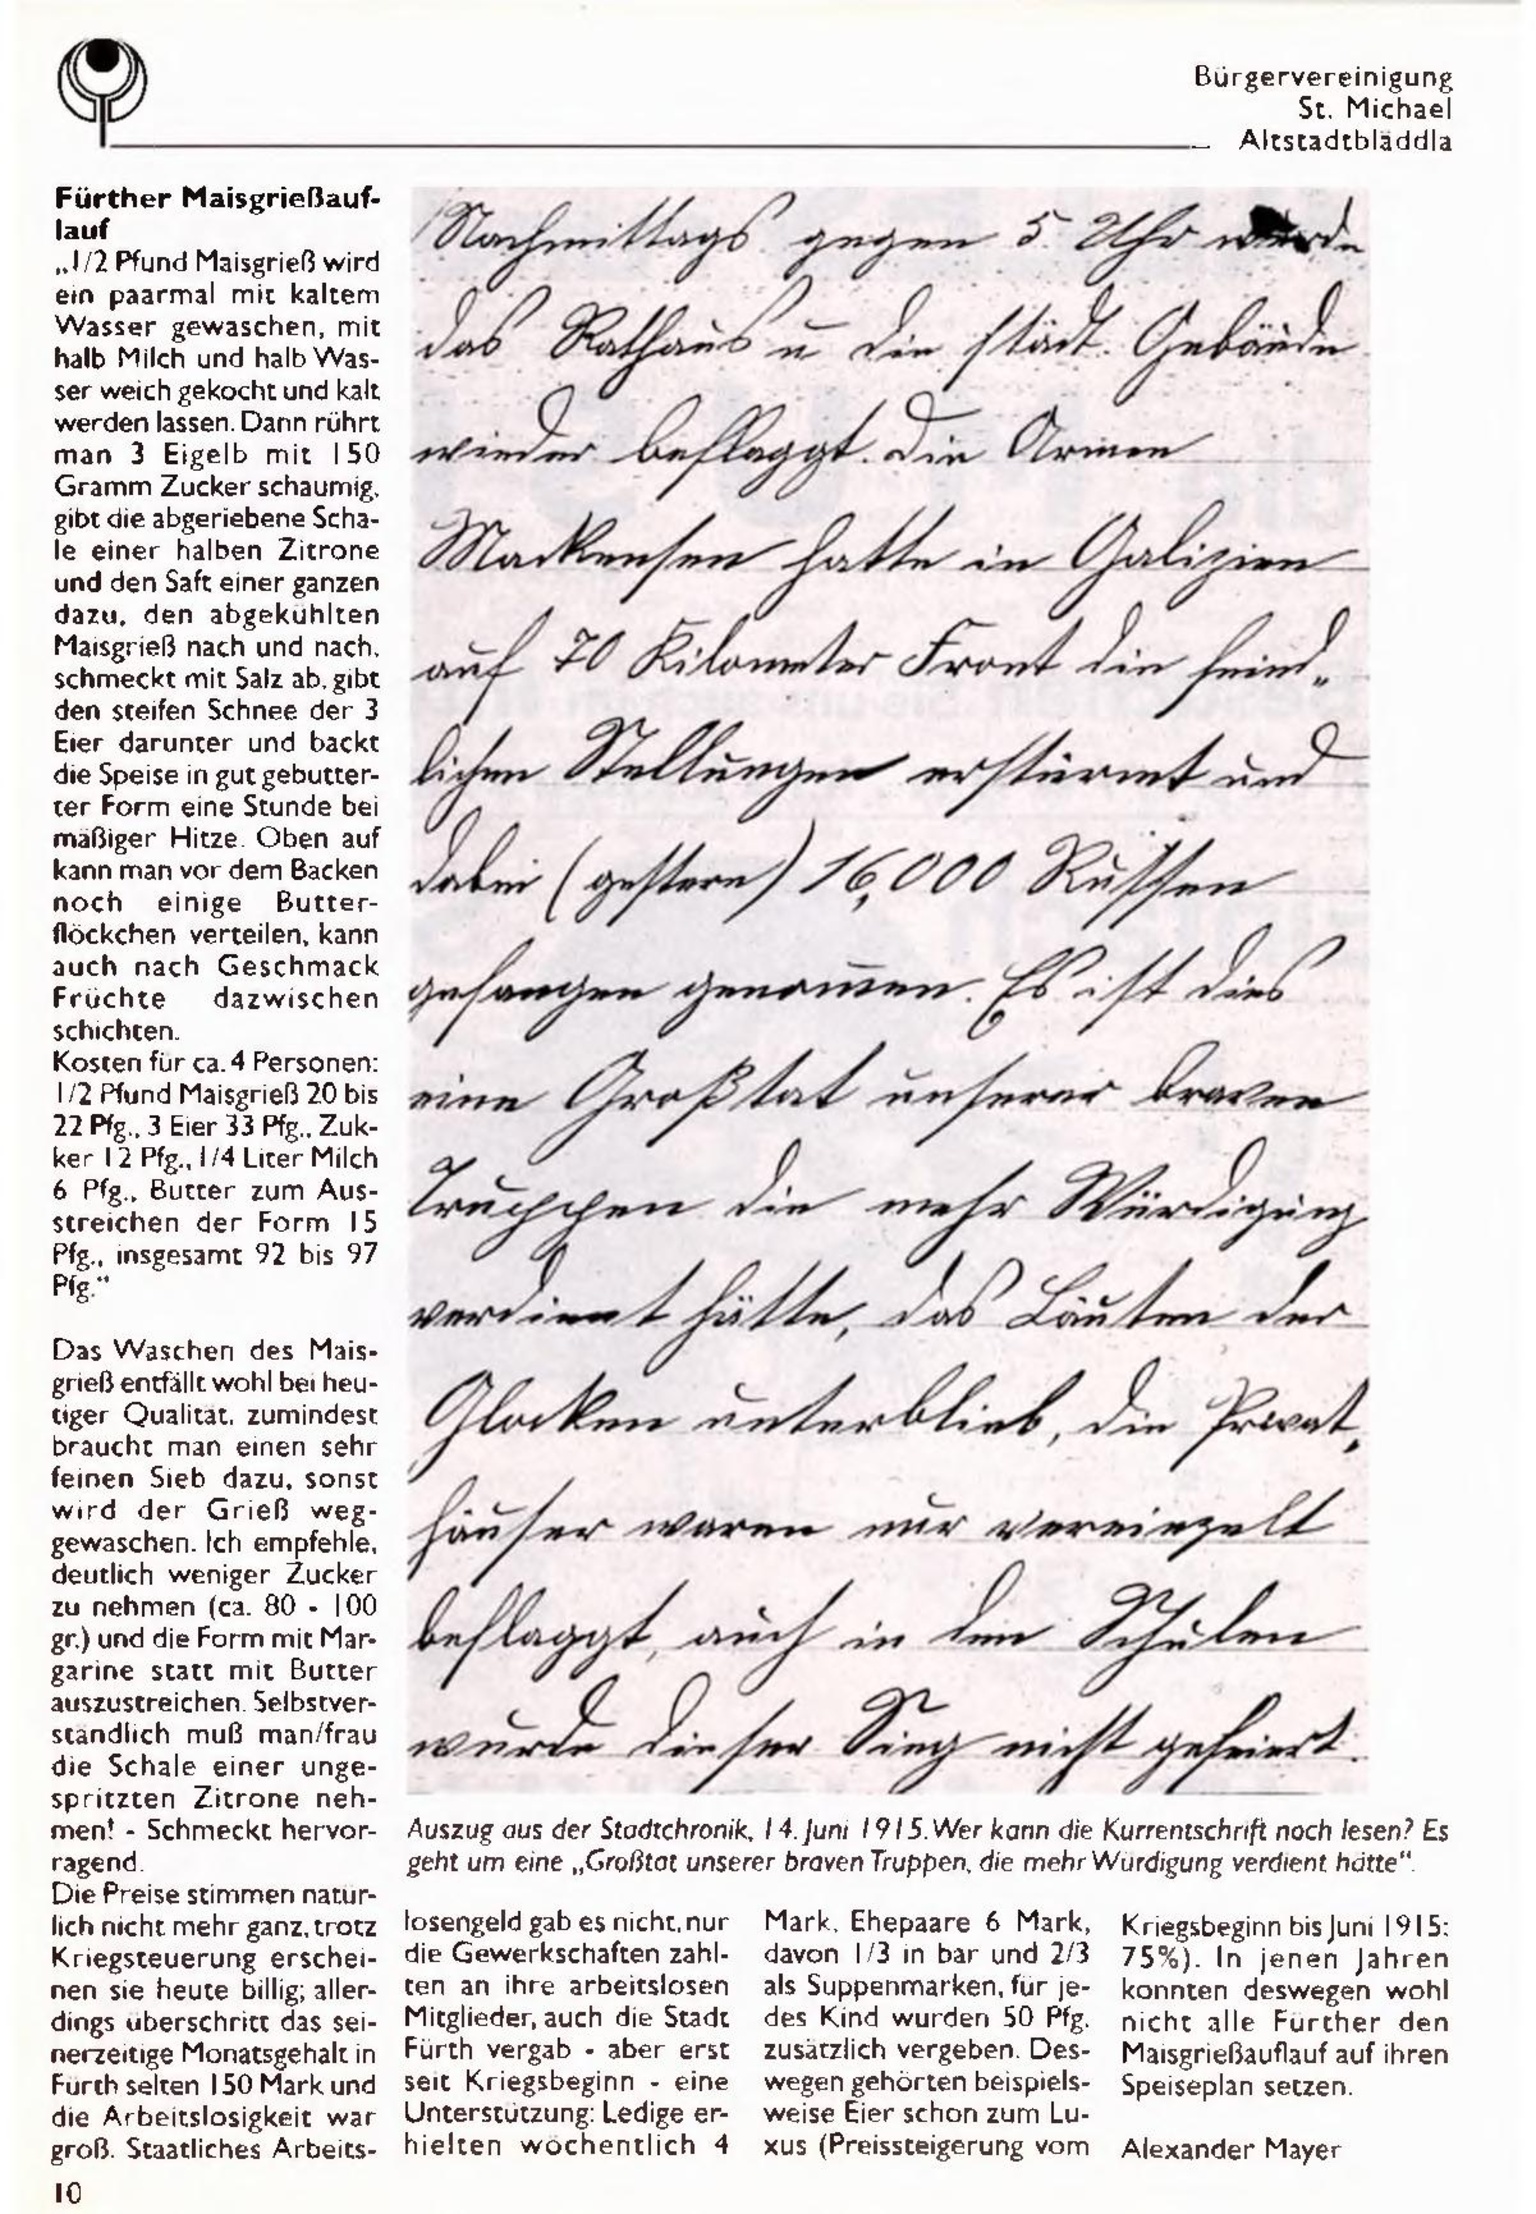 Bürgervereinigung
St. Michael
Altstadtbläddla
Fürther Maisgrießauf-
lauf
„1/2 Pfund Maisgrieß wird
ein paarmal mit kaltem
Wasser gewaschen, mit
halb Milch und halb Was-
ser weich gekocht und kalt
werden lassen. Dann rührt
man 3 Eigelb mit 150
Gramm Zucker schaumig,
gibt die abgeriebene Scha-
le einer halben Zitrone
und den Saft einer ganzen
dazu, den abgekühlten
Maisgrieß nach und nach,
schmeckt mit Salz ab, gibt
den steifen Schnee der 3
Eier darunter und backt
die Speise in gut gebutter-
ter Form eine Stunde bei
mäßiger Hitze. Oben auf
kann man vor dem Backen
noch einige Butter-
flöckchen verteilen, kann
auch nach Geschmack
Früchte dazwischen
schichten.
Kosten für ca. 4 Personen:
1/2 Pfund Maisgrieß 20 bis
22 Pfg., 3 Eier 33 Pfg., Zuk-
ker 12 Pfg., 1/4 Liter Milch
6 Pfg., Butter zum Aus-
streichen der Form 15
Pfg., insgesamt 92 bis 97
Pfg."
Das Waschen des Mais-
grieß entfällt wohl bei heu-
tiger Qualität, zumindest
braucht man einen sehr
feinen Sieb dazu, sonst
wird der Grieß weg-
gewaschen. Ich empfehle,
deutlich weniger Zucker
zu nehmen (ca. 80 - 100
gr.) und die Form mit Mar-
garine statt mit Butter
auszustreichen. Selbstver-
ständlich muß man/frau
die Schale einer unge-
spritzten Zitrone neh-
men! - Schmeckt hervor-
ragend.
Die Preise stimmen natür-
lich nicht mehr ganz, trotz
Kriegsteuerung erschei-
nen sie heute billig; aller-
dings überschritt das sei-
nerzeitige Monatsgehalt in
Fürth selten 150 Mark und
die Arbeitslosigkeit war
groß. Staatliches Arbeits-
Nachmittags gegen 5. Uhr wurde
das Rathaus u die städt. Gebäude
wieder beflaggt. Die Armee
Mackensen hatte in Galizien
auf 70 Kilometer Front die feind„
lichen Stellungen erstürmt und
dabei (gestern) 16,000 Russen
gefangen genom̅en. Es ist dies
eine Großtat unserer braven
Truppen die mehr Würdigung
verdient hätte, das Läuten der
Glocken unterblieb, die Privat„
häuser waren nur vereinzelt
beflaggt, auch in den Schulen
wurde dieser Sieg nicht gefeiert.
Auszug aus der Stadtchronik, 14. Juni 1915. Wer kann die Kurrentschrift noch lesen? Es
geht um eine „Großtat unserer braven Truppen, die mehr Würdigung verdient hätte".
losengeld gab es nicht, nur
die Gewerkschaften zahl-
ten an ihre arbeitslosen
Mitglieder, auch die Stadt
Fürth vergab - aber erst
seit Kriegsbeginn - eine
Unterstützung: Ledige er-
hielten wöchentlich 4
Mark, Ehepaare 6 Mark,
davon 1/3 in bar und 2/3
als Suppenmarken, für je-
des Kind wurden 50 Pfg.
zusätzlich vergeben. Des-
wegen gehörten beispiels-
weise Eier schon zum Lu-
xus (Preissteigerung vom
Kriegsbeginn bis Juni 1915:
75%). In jenen Jahren
konnten deswegen wohl
nicht alle Fürther den
Maisgrießauflauf auf ihren
Speiseplan setzen.
Alexander Mayer
10